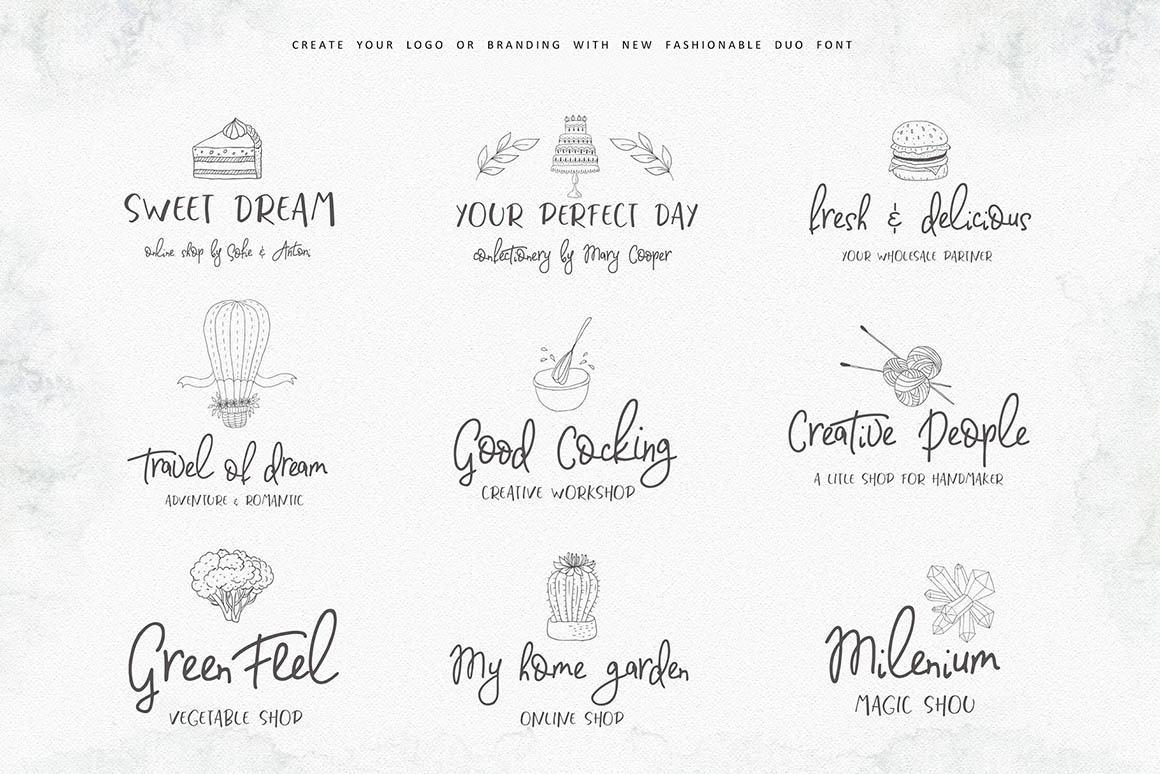 CREATE YOUR LOGO OR BRANDING WITH NEW FASHIONABLE DUO FONT
SWEET DREAM
online shop by Sofie & Anton
YOUR PERFECT DAY
confectionery by Mary Cooper
fresh & delicious
YOUR WHOLESALE PARTNER
Travel of dream
ADVENTURE & ROMANTIC
Good Cocking
CREATIVE WORKSHOP
Creative People
A LITLE SHOP FOR HANDMAKER
Green Fleel
VEGETABLE SHOP
My home garden
ONLINE SHOP
Milenium
MAGIC SHOU